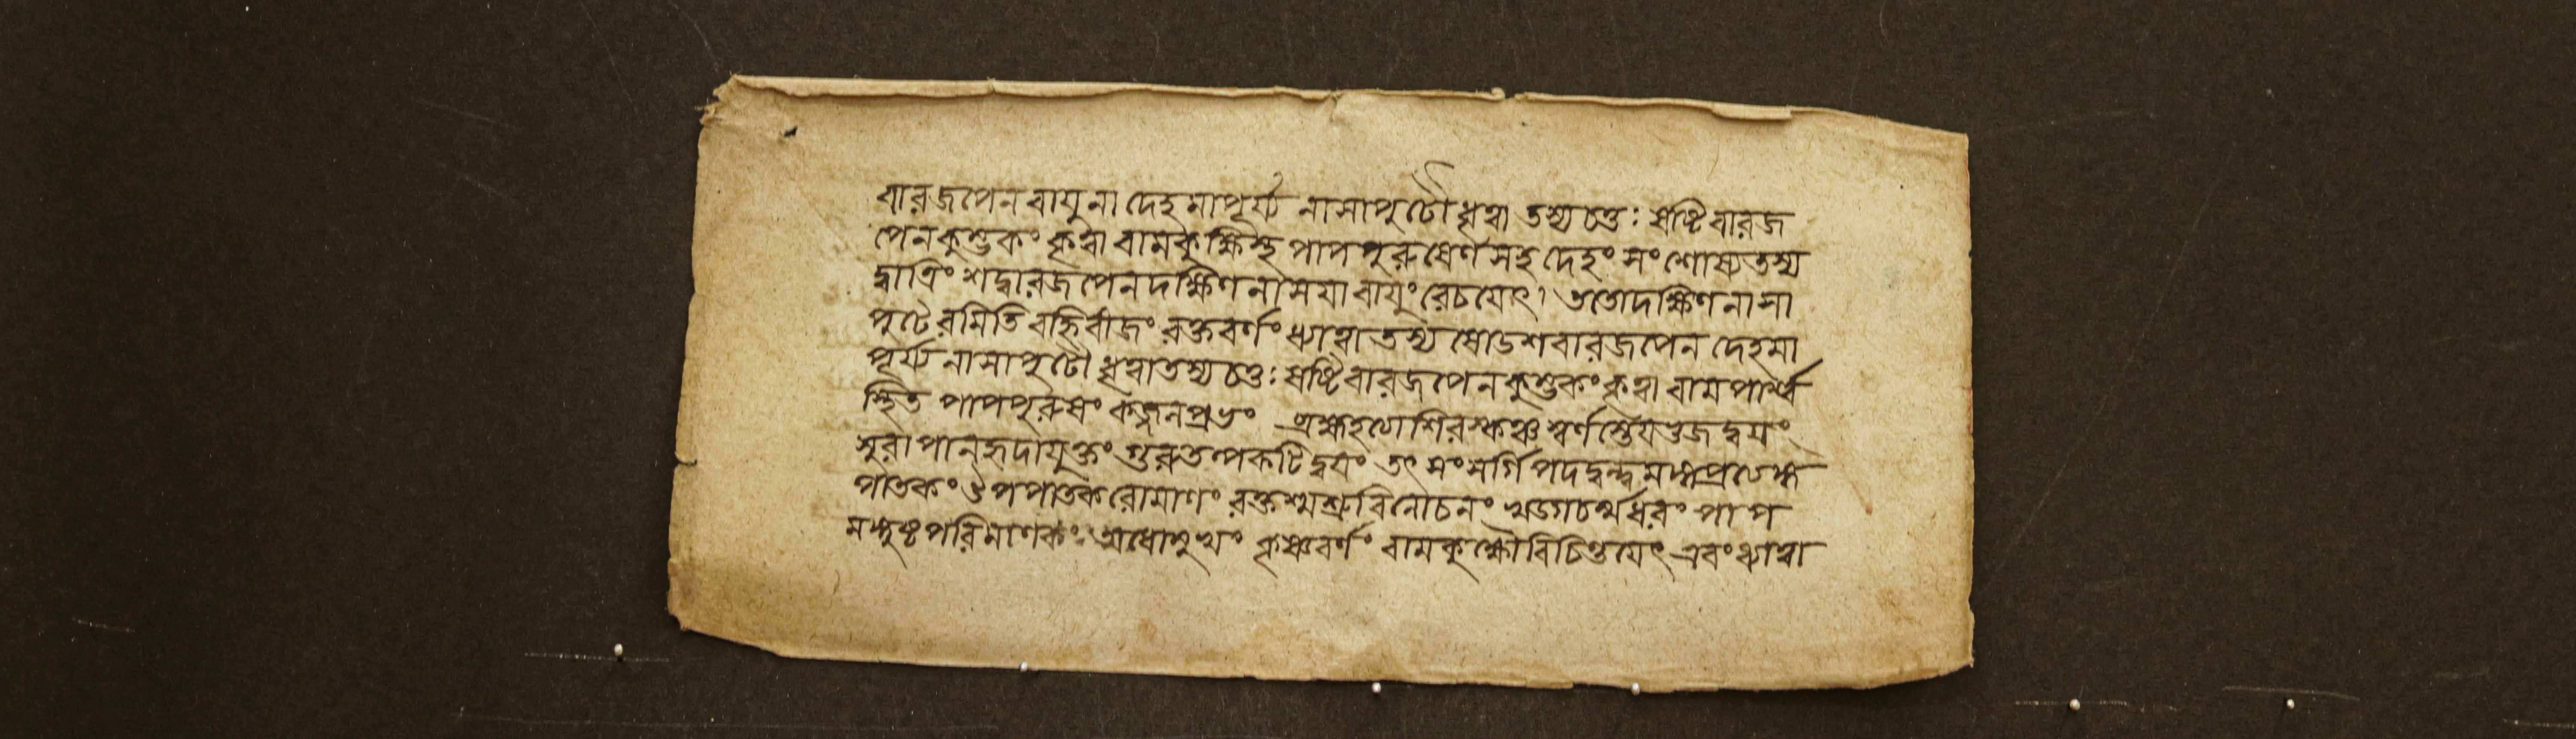 বারজপেন বায়ুনা দেহমাপূর্য্য নাসাপুটৌ ধৃত্বা তস্য চতুঃষষ্টিবারজ
পেন কুম্ভকং কৃত্বা বামকুক্ষিস্থ পাপপুরুষেণ সহ দেহং সংশোষ্য তস্য
দ্বাত্রিংশদ্বারজপেন দক্ষিণনাসয়া বায়ুং রেচয়েৎ। ততো দক্ষিণনাসা
পুটে রমিতি বহ্নিবীজং রক্তবর্ণং ধ্যাত্বা তস্য ষোডশবারজপেন দেহমা
পূর্য্য নাসাপুটৌ ধৃত্বা তস্য চতুঃষষ্টিবারজপেন কুম্ভকং কৃত্বা বামপার্শ্ব
স্থিত পাপপুরুষং কজ্জলপ্রভং ব্রহ্মহত্যাশিরস্কঞ্চ স্বর্ণস্তেয়ভুজদ্বয়ং
সুরাপানহৃদাযুক্তং গুরুতল্পকটিদ্বয়ং তৎসংসর্গিপদদ্বন্দ্বমঙ্গপ্রত্যঙ্গ
পাতকং উপপাতকরোমাণং রক্তশ্মশ্রুবিলোচনং খড্গচর্ম্মধরং পাপ
মঙ্গুষ্ঠপরিমাণকং অধোমুখং কৃষ্ণবর্ণং বামকুক্ষৌ বিচিন্তয়েৎ এবং ধ্যাত্বা